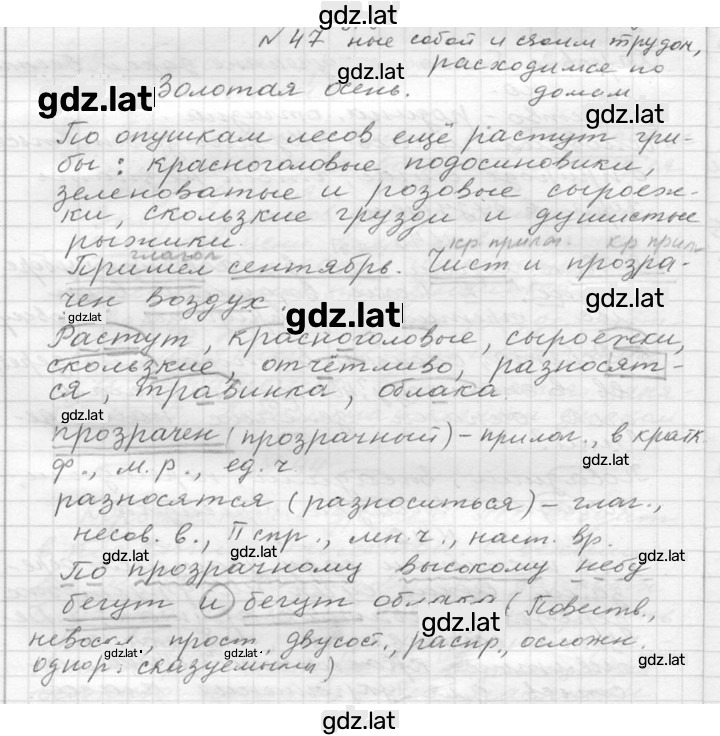 gdz.lat
№ 47 ные собой и своим трудом,
gdz.lat расходимся по
gdz.lat Золотая осень. домам
gdz.lat
По опушкам лесов ещё растут гри-
бы: красноголовые подосиновики,
зеленоватые и розовые сыроеж-
ки, скользкие грузди и душистые
рыжики.
глагол кр. прилаг. кр прил
Пришёл сентябрь. Чист и прозра-
чен воздух.
gdz.lat gdz.lat gdz.lat
Растут, красноголовые, сыроежки,
скользкие, отчётливо, разносят-
ся, травинка, облака.
gdz.lat
прозрачен (прозрачный) – прилаг., в кратк.
ф., м. р., ед. ч.
gdz.lat
разносятся (разноситься) – глаг.,
несов. в., II спр., мн. ч., наст. вр.
gdz.lat gdz.lat gdz.lat
По прозрачному высокому небу
бегут и бегут облака (Повеств.,
gdz.lat
невоскл., прост., двусост., распр., осложн.
gdz.lat gdz.lat gdz.lat
однор. сказуемыми)
gdz.lat